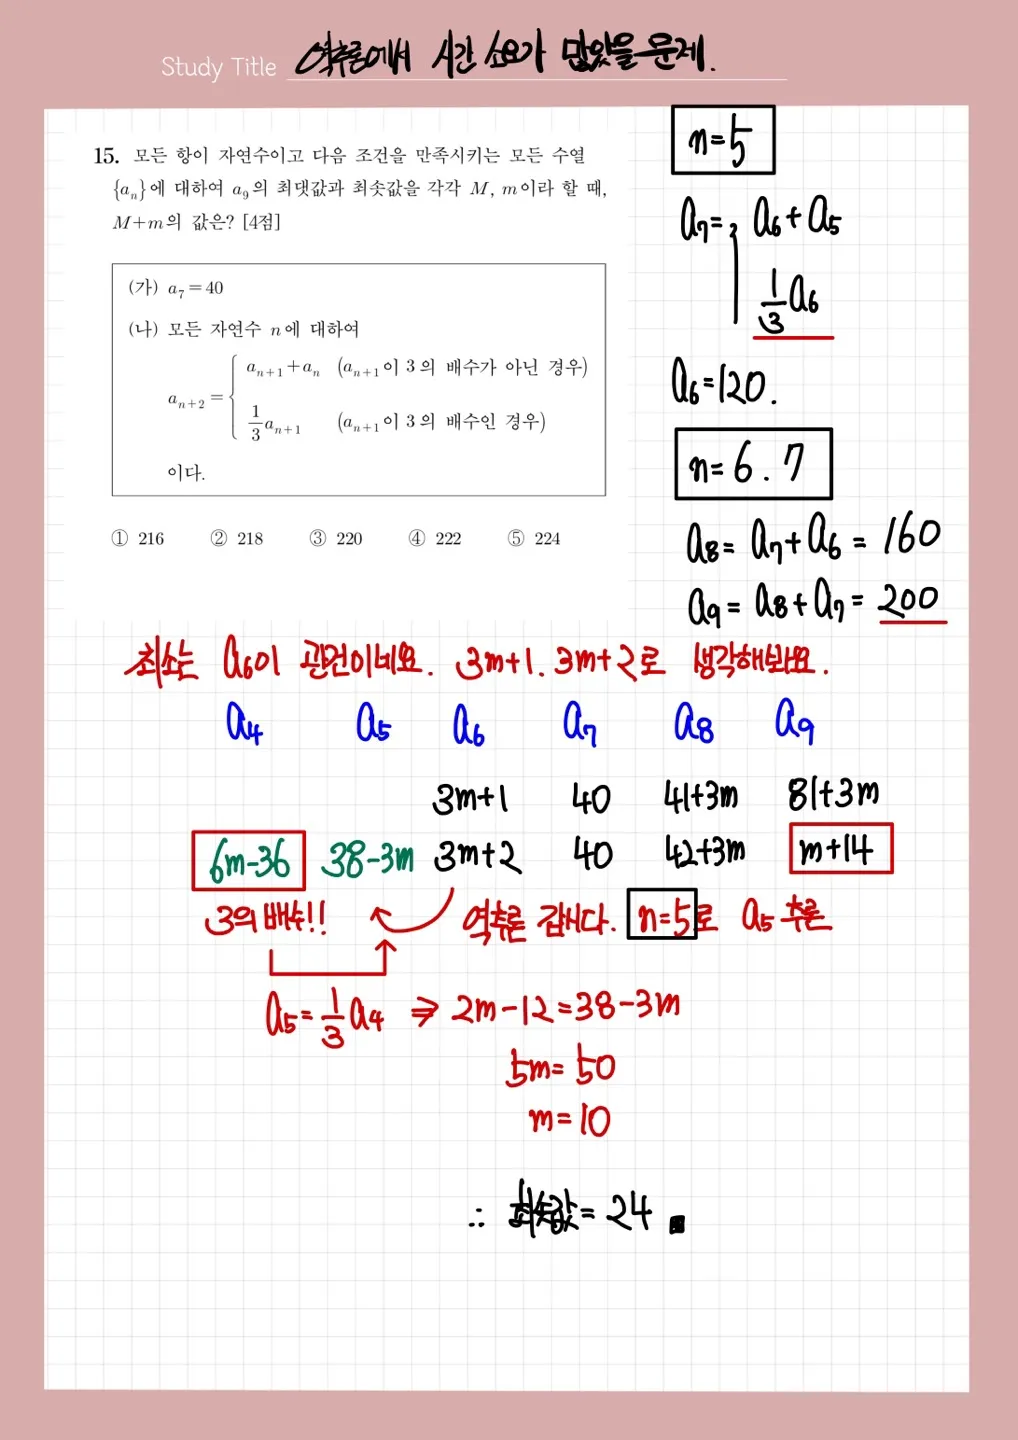 Study Title 역추론에서 시간 소요가 많았을 문제.
15. 모든 항이 자연수이고 다음 조건을 만족시키는 모든 수열
{aₙ}에 대하여 a₉의 최댓값과 최솟값을 각각 M, m이라 할 때,
M+m의 값은? [4점]
(가) a₇=40
(나) 모든 자연수 n에 대하여
aₙ₊₂ = { aₙ₊₁+aₙ (aₙ₊₁이 3의 배수가 아닌 경우)
1/3 aₙ₊₁ (aₙ₊₁이 3의 배수인 경우)
이다.
① 216 ② 218 ③ 220 ④ 222 ⑤ 224
n=5
a₇= a₆+a₅
1/3 a₆
a₆=120.
n=6.7
a₈= a₇+a₆ = 160
a₉= a₈+a₇= 200
최소는 a₆이 관건이네요. 3m+1. 3m+2로 생각해봐요.
a₄ a₅ a₆ a₇ a₈ a₉
3m+1 40 41+3m 81+3m
6m-36 38-3m 3m+2 40 42+3m m+14
3의 배수!! 역추론 갑시다. n=5로 a₅ 추론
a₅=1/3 a₄ ⇒ 2m-12=38-3m
5m=50
m=10
∴ 최솟값= 24